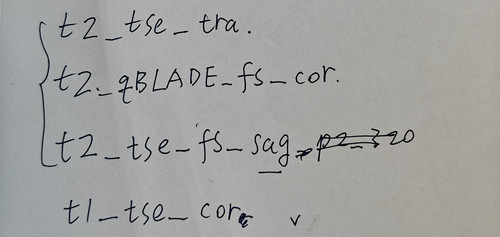 t2_tse_tra.
t2_qBLADE_fs_cor.
t2_tse_fs_sag_p2_320
t1_tse_cor